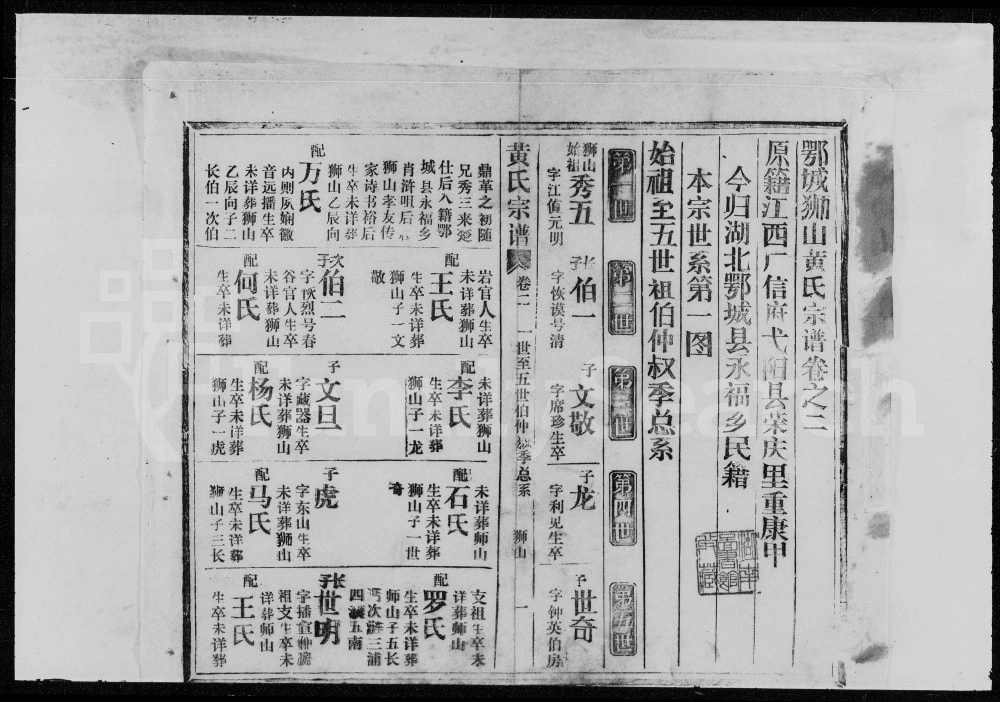 鄂城狮山黄氏宗谱卷之二
原籍江西广信府弋阳县荣庆里重康甲
今归湖北鄂城县永福乡民籍
本宗世系第一图
始祖至五世祖伯仲叔季总系
第一世
第二世
第三世
第四世
第五世
狮山始祖 秀五 字江 元明
长子 伯一 字恢谟号清
子 文敬 字席珍生卒
子 龙 字利见生卒
子 世奇 字钟英伯房
黄氏宗谱 卷二 一世至五世伯仲叔季总系 狮山 一
鼎革之初随
兄秀三来楚
仕后入籍鄂
城县永福乡
肖浒咀后
狮山孝友传
家诗书裕后
生卒未详葬
狮山乙辰向
配 万氏
内则夙娴徽
音远播生卒
未详葬狮山
乙辰向子二
长伯一次伯
岩官人生卒
未详葬狮山
配 王氏
生卒未详葬
狮山子一文
敬
次子 伯二
字恢烈号春
谷官人生卒
未详葬狮山
配 何氏
生卒未详葬
未详葬狮山
配 李氏
生卒未详葬
狮山子一龙
子 文旦
字藏器生卒
未详葬狮山
配 杨氏
生卒未详葬
狮山子一虎
未详葬师山
配 石氏
生卒未详葬
狮山子一世
奇
子 虎
字东山生卒
未详葬狮山
配 马氏
生卒未详葬
狮山子三长
支祖生卒未
详葬师山
配 罗氏
生卒未详葬
师山子五长
次 三浦
四 五南
长子 世明
字播宣
祖支生卒未
详葬师山
配 王氏
生卒未详葬
FamilySearch